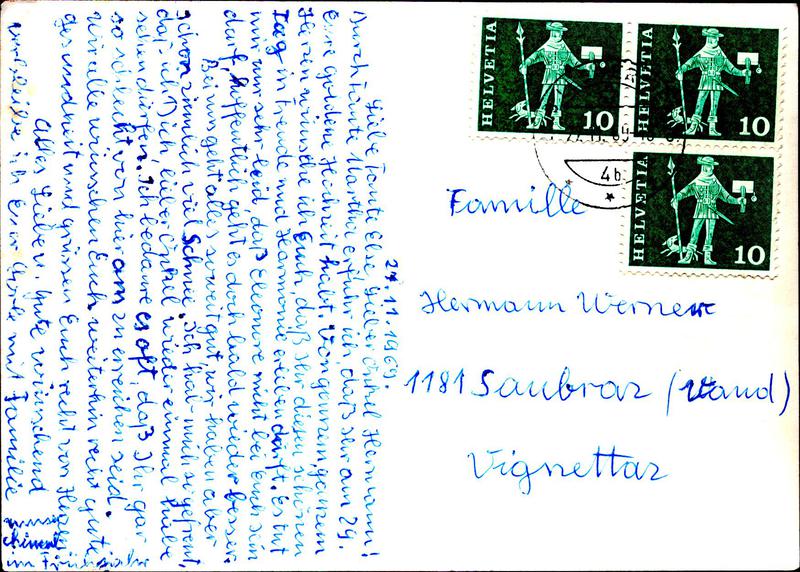 HELVETIA 10
HELVETIA 10
HELVETIA 10
4b
Famille
Hermann Werner
1181 Saubraz (Vaud)
Vignettaz
27.11.1969.
Liebe Tante Else, lieber Onkel Hermann!
Durch Tante Martha erfuhr ich, daß Ihr am 29.
Eure goldene Hochzeit habt. Von ganzem, ganzem
Herzen wünsche ich Euch daß Ihr diesen schönen
Tag in Freude und Harmonie erleben dürft. Es tut
mir nur sehr leid, daß Eleonore nicht bei Euch sein
darf, hoffentlich geht es doch bald wieder besser.
Bei uns geht alles soweit gut wir haben aber
schon ziemlich viel Schnee. Ich hab mich so gefreut,
daß ich Dich, lieber Onkel wieder einmal habe
sehen dürfen. Ich bedaure es oft, daß Ihr gar
so schlecht von hier am zu erreichen seid.
Wir alle wünschen Euch weiterhin recht gute
Gesundheit und grüssen Euch recht von Herzen
Alles Liebe u. Gute wünschend
verbleibe ich Eure mit Familie
im Frühjahr